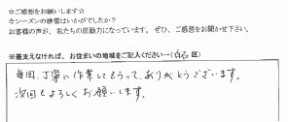 ☆ご感想をお願いします☆
今シーズンの排雪はいかがでしたか?
お客様の声が、私たちの原動力になっています。ぜひ、ご感想をお聞かせ下さい。
※差支えなければ、お住まいの地域をご記入ください→( 区)
毎回、丁寧に作業してもらって、ありがとうございます。
次回もよろしくお願いします。